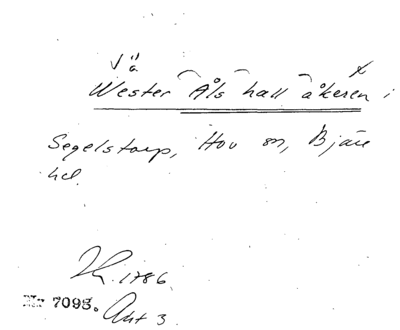 Vä
Wester Åls hall åkeren i
Segelstorp, Hov sn, Bjäre
hd.
1786.
Nr 7095. Akt 3.